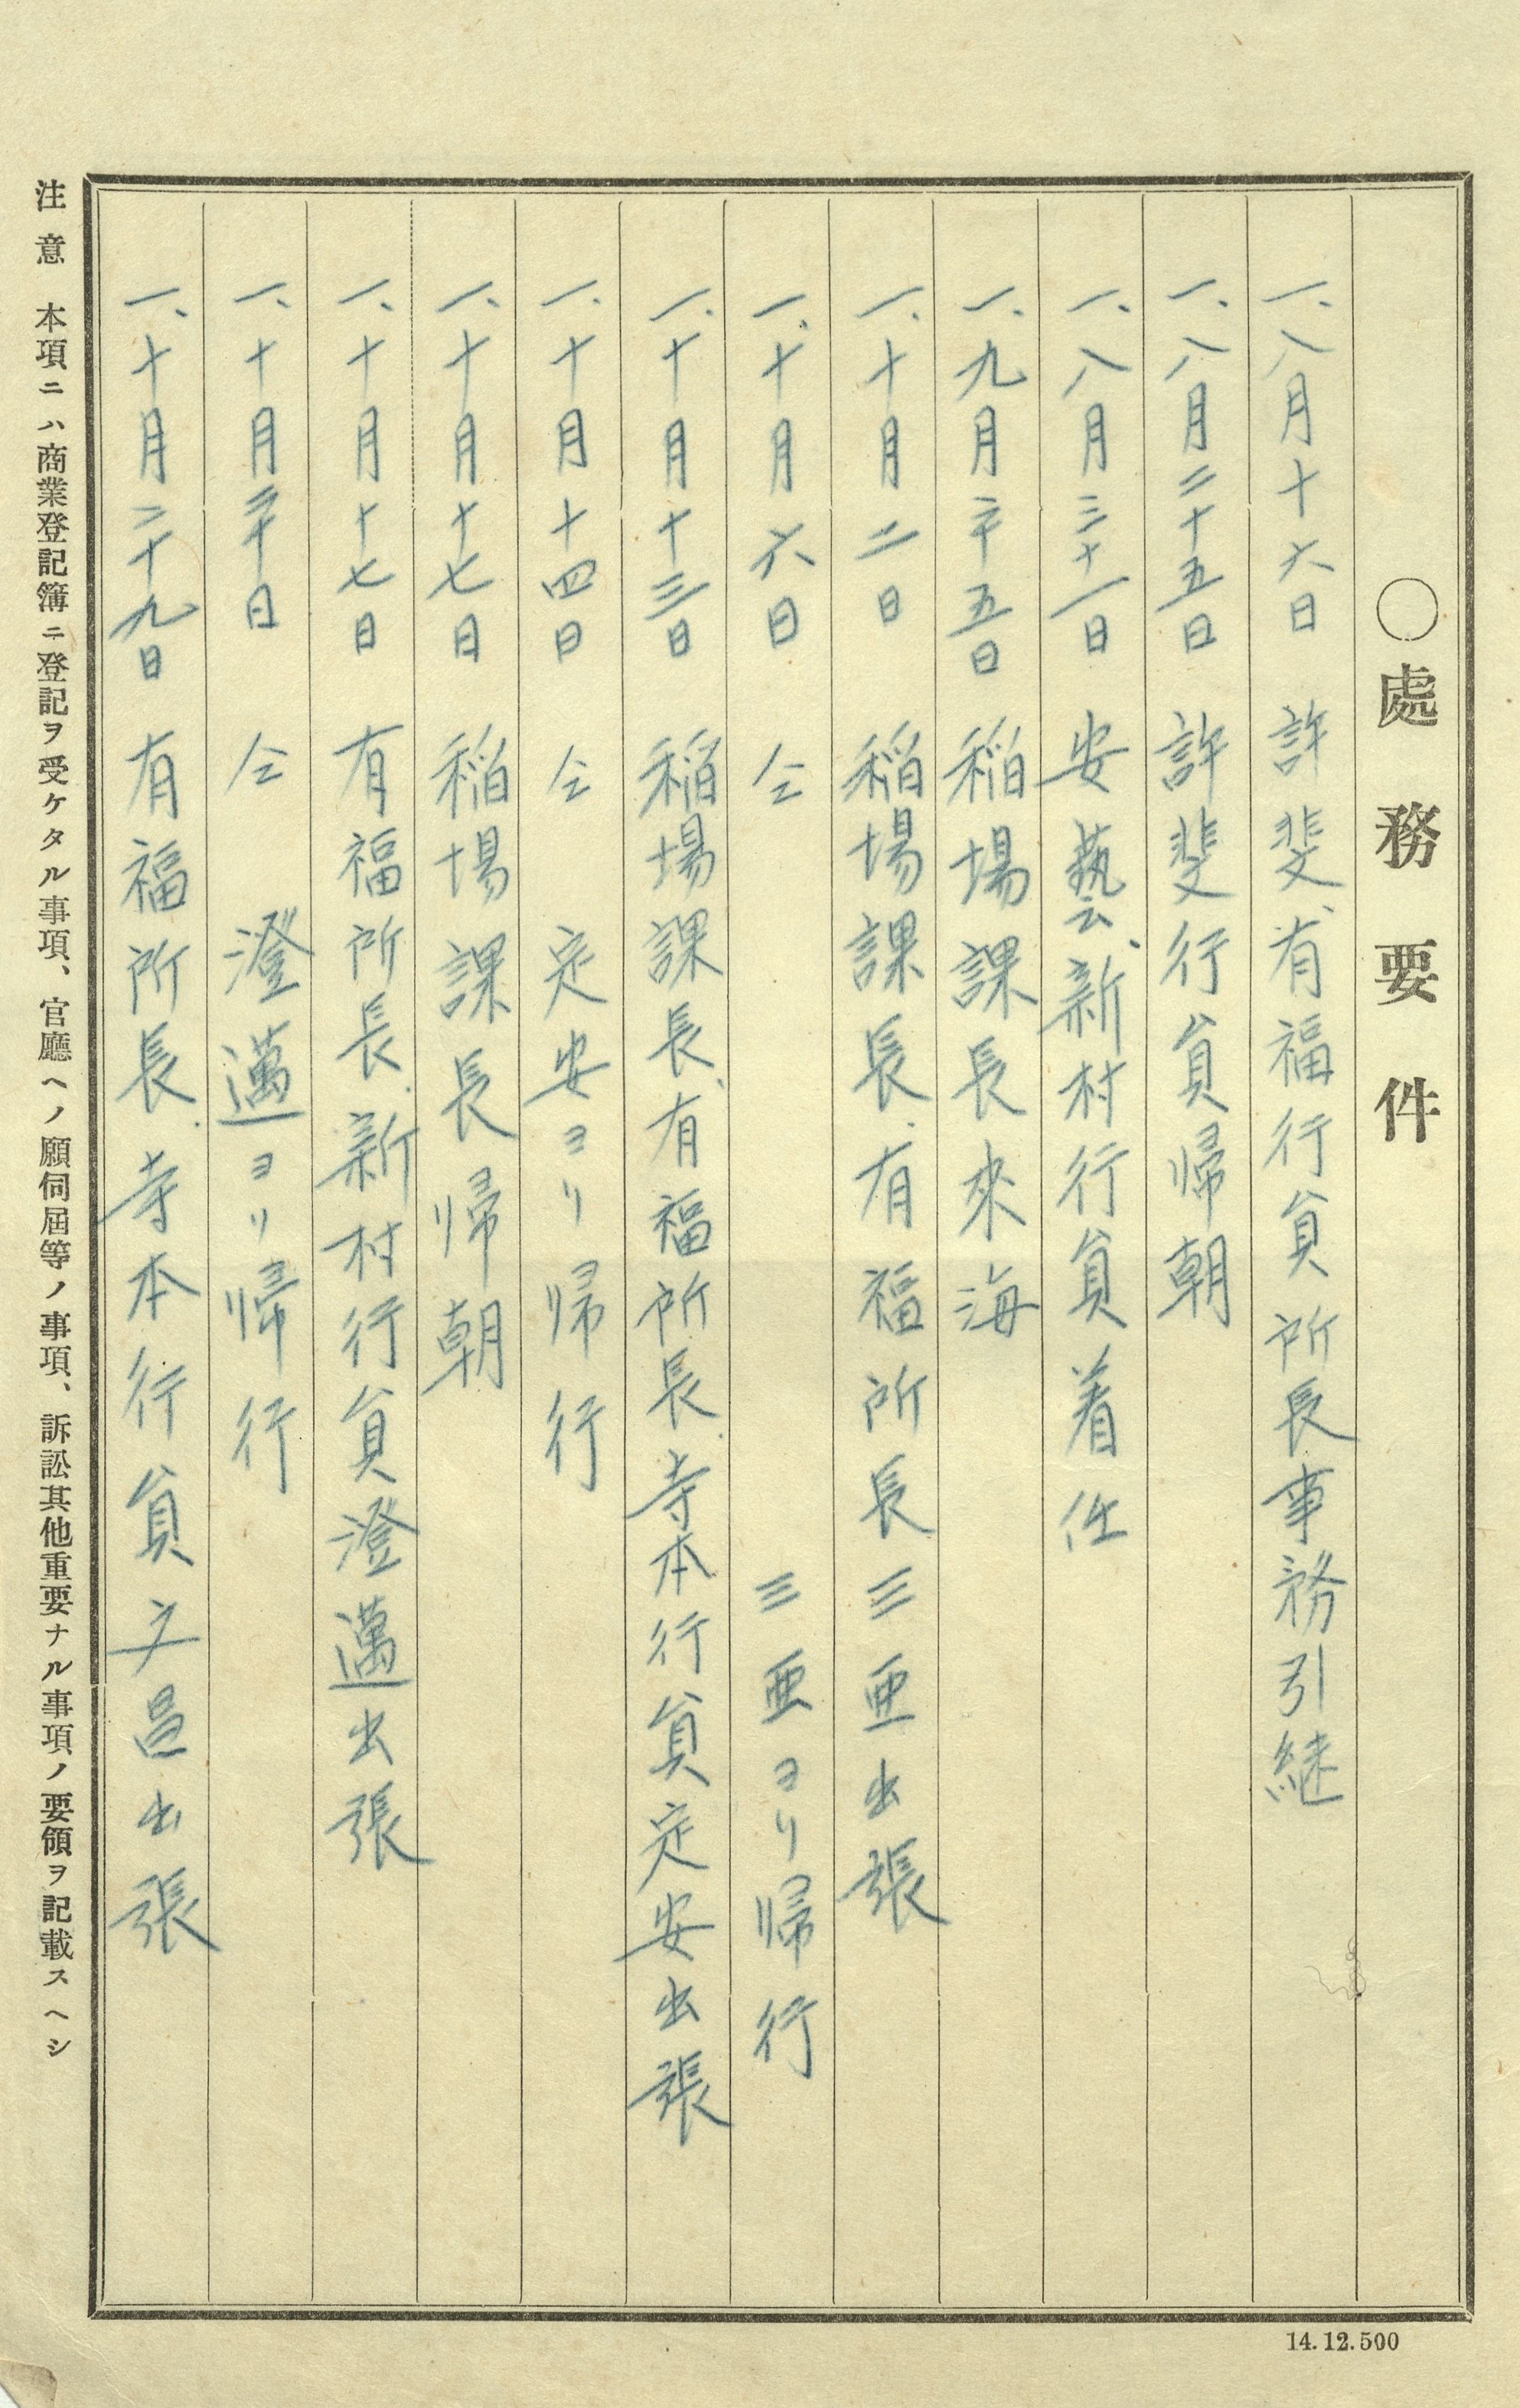 ○處務要件
一、八月十六日 許斐、有福行員所長事務引継
一、八月二十五日 許斐行員帰朝
一、八月三十一日 安藝、新村行員着任
一、九月二十五日 稲場課長來海
一、十月二日 稲場課長、有福所長三亜出張
一、十月六日 仝 三亜ヨリ帰行
一、十月十三日 稲場課長、有福所長、寺本行員定安出張
一、十月十四日 仝 定安ヨリ帰行
一、十月十七日 稲場課長帰朝
一、十月十七日 有福所長、新村行員澄邁出張
一、十月二十日 仝 澄邁ヨリ帰行
一、十月二十九日 有福所長、寺本行員文昌出張
注意 本項ニハ商業登記簿ニ登記ヲ受ケタル事項、官廳ヘノ願伺屆等ノ事項、訴訟其他重要ナル事項ノ要領ヲ記載スヘシ
14.12.500